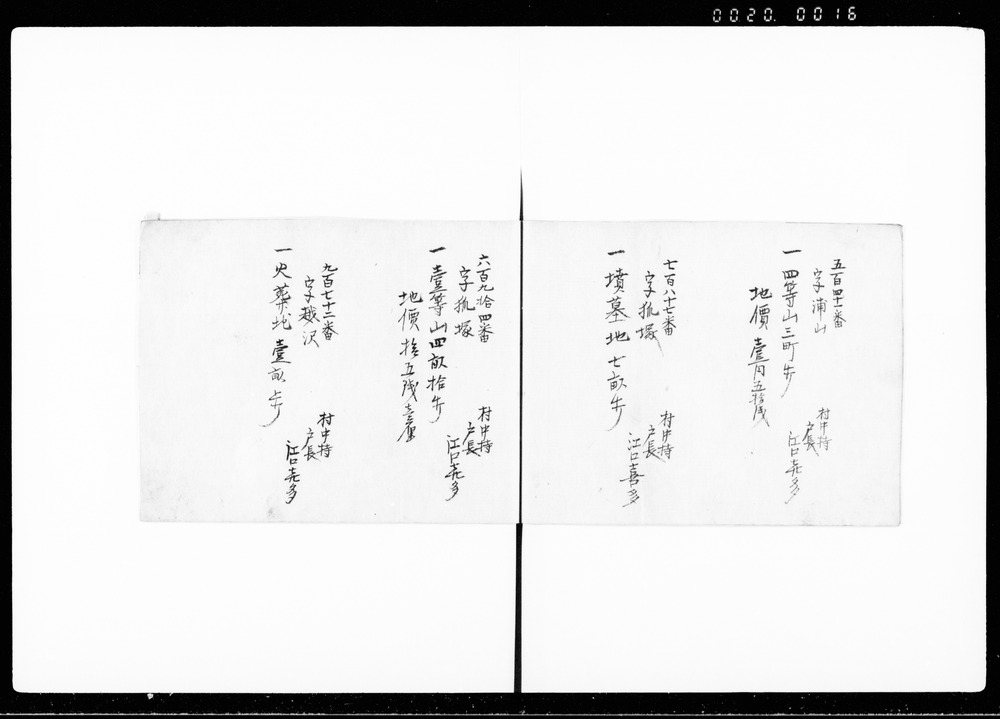 0020.0016
五百四十一番
字浦山
一四等山三町歩
地價壹円五拾銭
村中持
戸長
江口㐂多
七百八十七番
字狐塚
一墳墓地七畝歩
村中持
戸長
江口喜多
六百九拾四番
字狐塚
一壹等山四畝拾歩
地價拾五銭壹厘
村中持
戸長
江口㐂多
九百七十二番
字越沢
一火葬地壹畝歩
村中持
戸長
江口㐂多